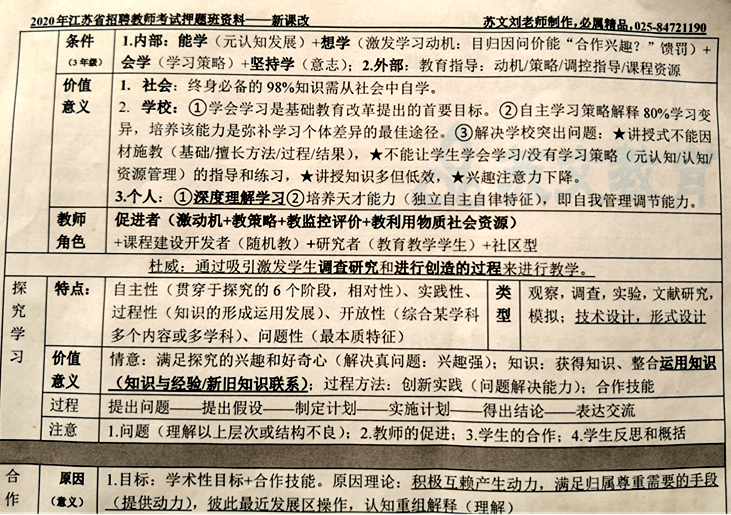 2020年江苏省招聘教师考试押题班资料——新课改 苏文刘老师制作，必属精品，025-84721190
条件 1.内部：能学（元认知发展）+想学（激发学习动机：目归因问价能“合作兴趣？”馈罚）+
（3年级） 会学（学习策略）+坚持学（意志）；2.外部：教育指导：动机/策略/调控指导/课程资源
价值 1. 社会：终身必备的98%知识需从社会中自学。
意义 2. 学校：①学会学习是基础教育改革提出的首要目标。②自主学习策略解释80%学习变
异，培养该能力是弥补学习个体差异的最佳途径。③解决学校突出问题：★讲授式不能因
材施教（基础/擅长方法/过程/结果），★不能让学生学会学习/没有学习策略（元认知/认知/
资源管理）的指导和练习，★讲授知识多但低效，★兴趣注意力下降。
3.个人：①深度理解学习②培养天才能力（独立自主自律特征），即自我管理调节能力。
教师 促进者（激动机+教策略+教监控评价+教利用物质社会资源）
角色 +课程建设开发者（随机教）+研究者（教育教学学生）+社区型
杜威：通过吸引激发学生调查研究和进行创造的过程来进行教学。
探究学习 特点： 自主性（贯穿于探究的6个阶段，相对性）、实践性、 类型 观察，调查，实验，文献研究，
过程性（知识的形成运用发展）、开放性（综合某学科 模拟；技术设计，形式设计
多个内容或多学科）、问题性（最本质特征）
价值 情意：满足探究的兴趣和好奇心（解决真问题：兴趣强）；知识：获得知识、整合运用知识
意义 （知识与经验/新旧知识联系）；过程方法：创新实践（问题解决能力）；合作技能
过程 提出问题——提出假设——制定计划——实施计划——得出结论——表达交流
注意 1.问题（理解以上层次或结构不良）；2.教师的促进；3.学生的合作；4.学生反思和概括
合作 原因 1.目标：学术性目标+合作技能。原因理论：积极互赖产生动力，满足归属尊重需要的手段
（意义） （提供动力），彼此最近发展区操作，认知重组解释（理解）